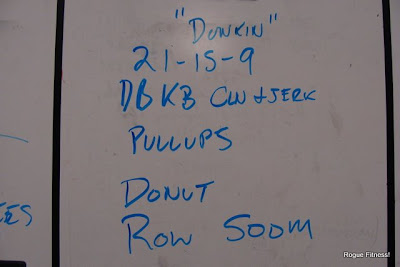 "Dunkin"
21-15-9
DB KB CLN + JERK
PULLUPS
DONUT
ROW 500M
EES
Rogue Fitness!